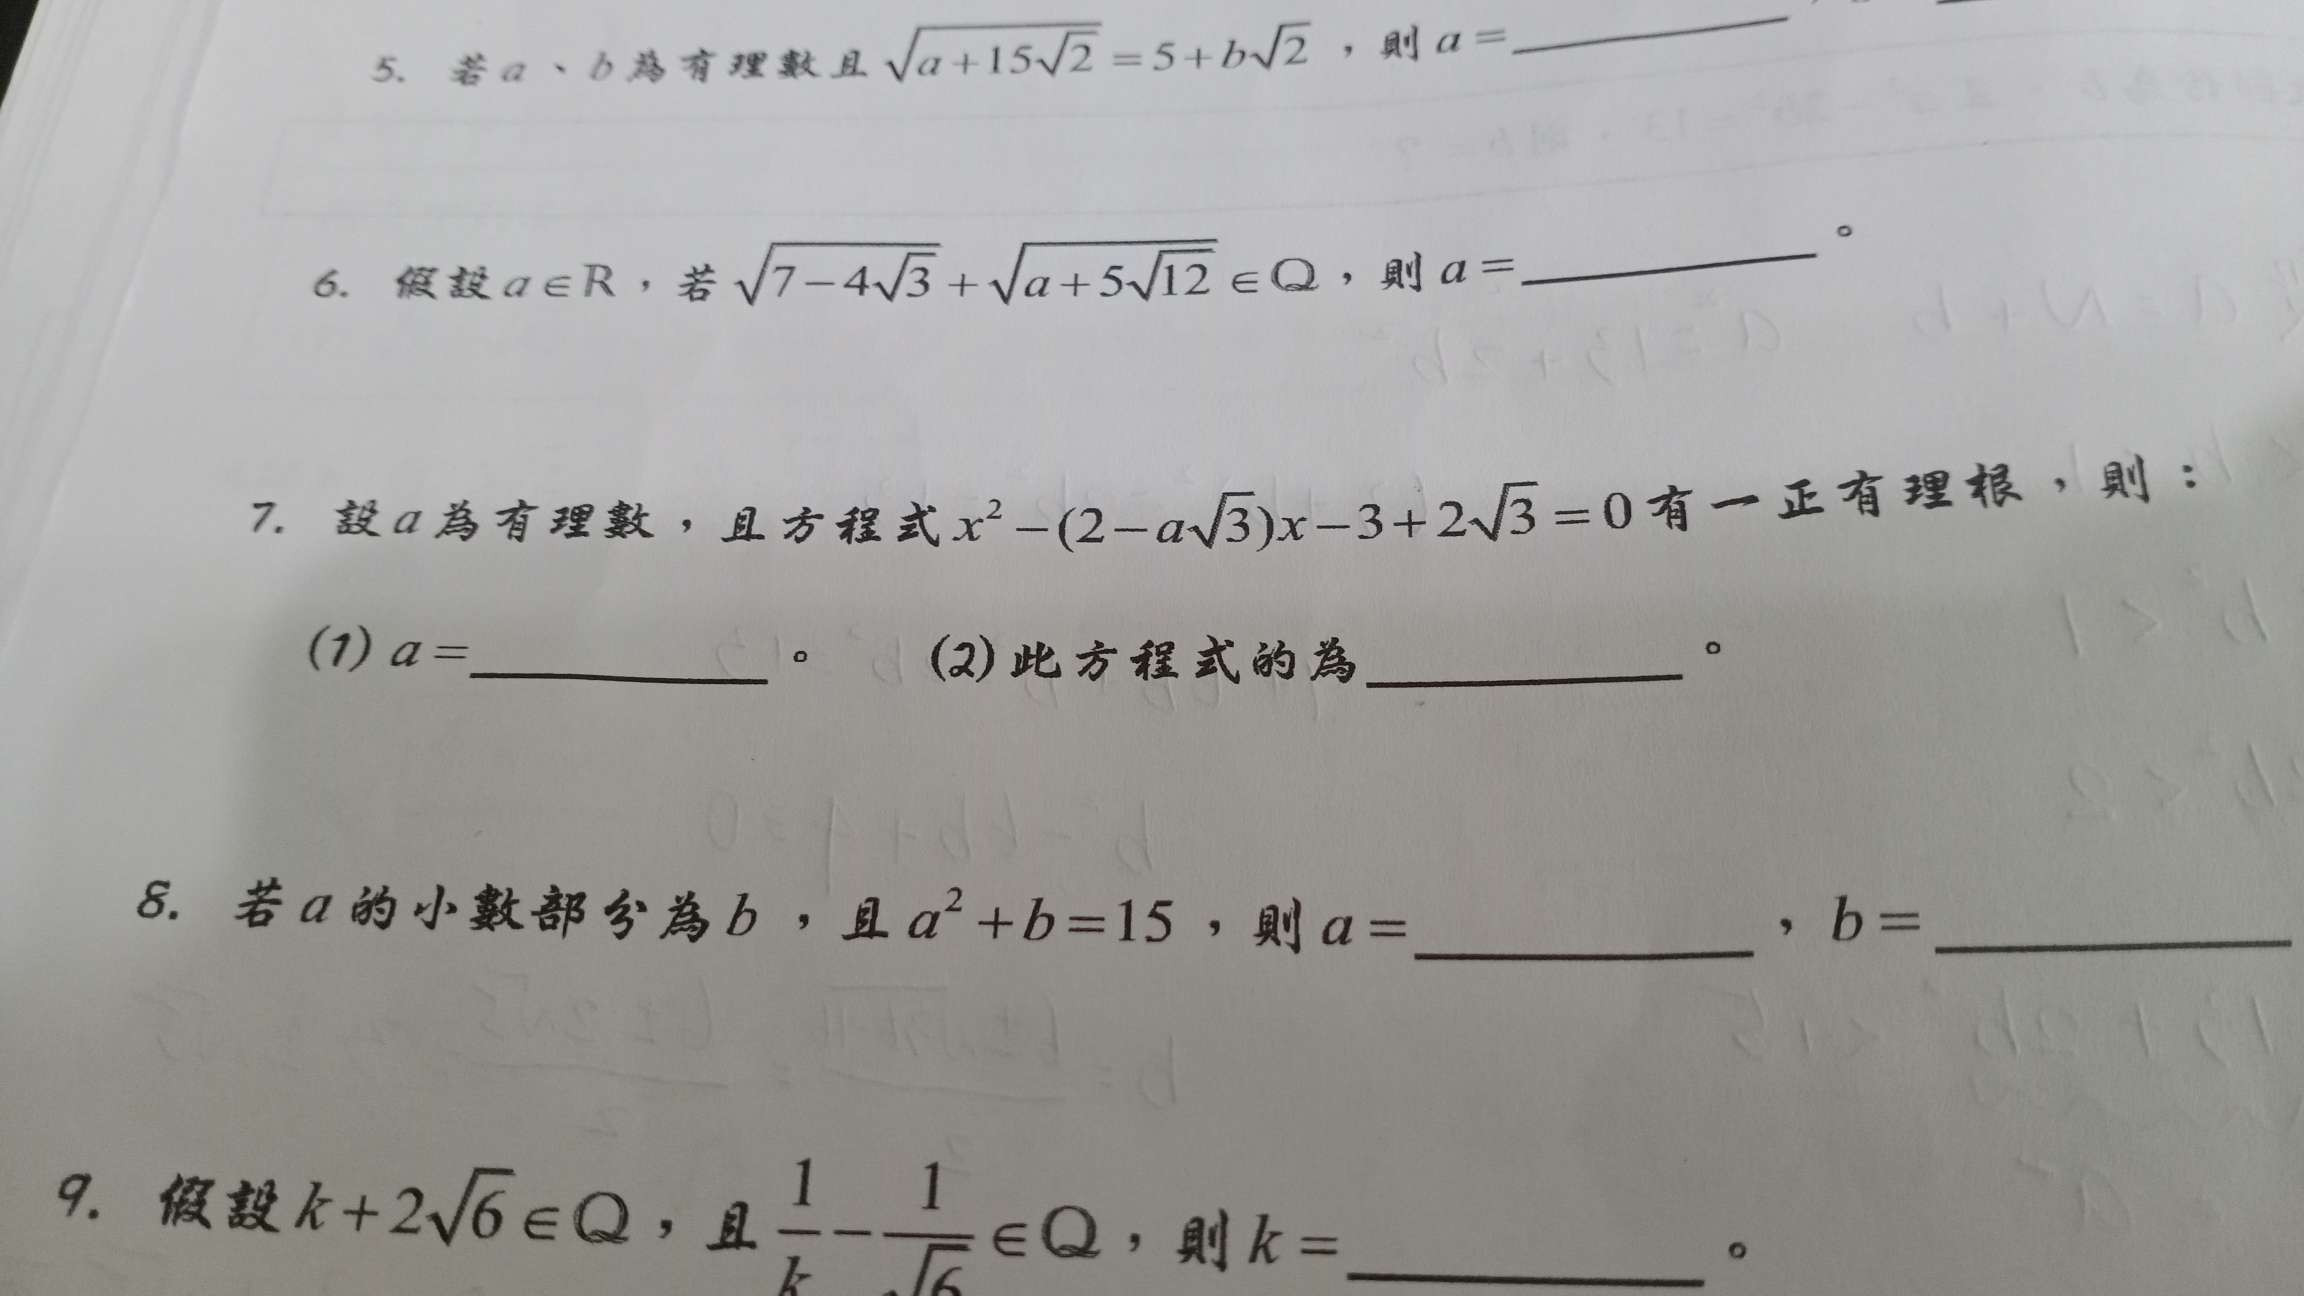 5. 若a、b為有理數且√(a+15√2)=5+b√2，則a=________
6. 假設a∈R，若√(7-4√3)+√(a+5√12)∈Q，則a=________。
7. 設a為有理數，且方程式x²-(2-a√3)x-3+2√3=0有一正有理根，則：
(1) a=________。 (2)此方程式的為________。
8. 若a的小數部分為b，且a²+b=15，則a=________，b=________
9. 假設k+2√6∈Q，且1/k-1/√6∈Q，則k=________。